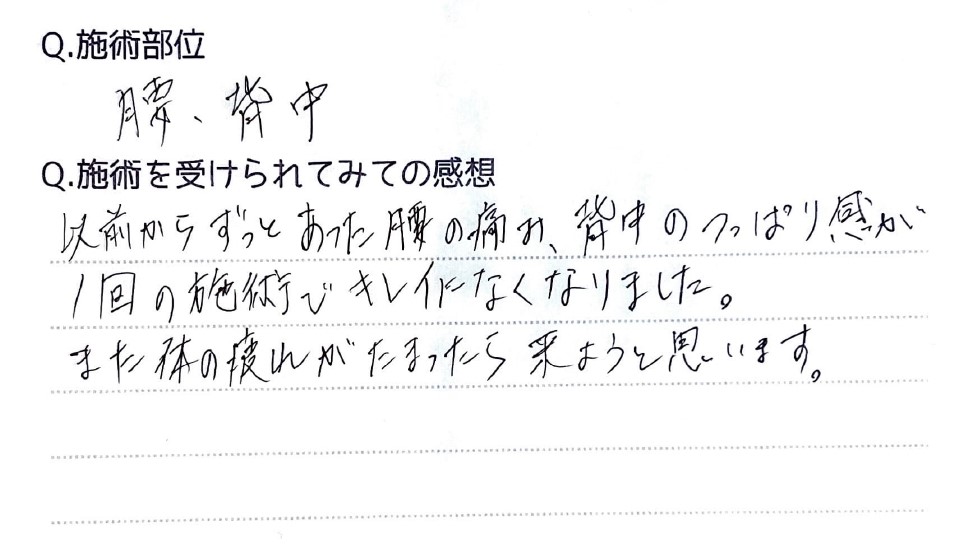 Q.施術部位
腰、背中
Q.施術を受けられてみての感想
以前からずっとあった腰の痛み、背中のつっぱり感が
1回の施術でキレイになくなりました。
また体の疲れがたまったら来ようと思います。